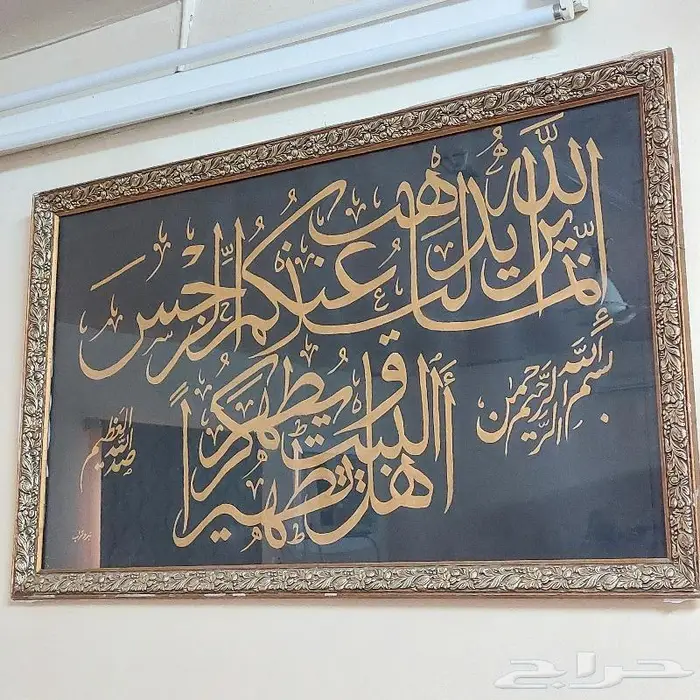 بسم الله الرحمن الرحيم
إنما يريد الله ليذهب عنكم الرجس
أهل البيت ويطهركم تطهيراً
صدق الله العظيم
حراج